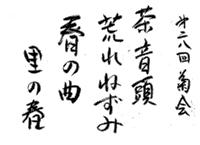 第二八回菊会
茶音頭
荒れねずみ
春の曲
里の春